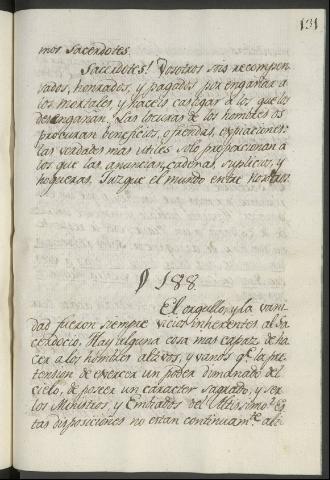 131
mos Sacerdotes.
Sacerdotes! Vosotros sois recompen
sados, honrados, y pagados por engañar à
los mortales, y haceis castigar à los que los
desengañan. Las locuras de los hombres os
procuran beneficios, ofrendas, expiaciones:
las verdades mas utiles solo proporcionan à
los que las anuncian, cadenas, suplicios, y
hogueras. Juzgue el mundo entre nosotros.
§ 188.
El orgullo, y la vani
dad fueron siempre vicios inherentes al Sa
cerdocio. Hay alguna cosa mas capaz de ha
cer a los hombres altivos, y vanos q.e la pre
tension de exercer un poder dimanado del
cielo, de poseer un caracter sagrado, y ser
los Ministros, y Embiados del Altissimo? Es
tas disposiciones no estan continuam.te ali